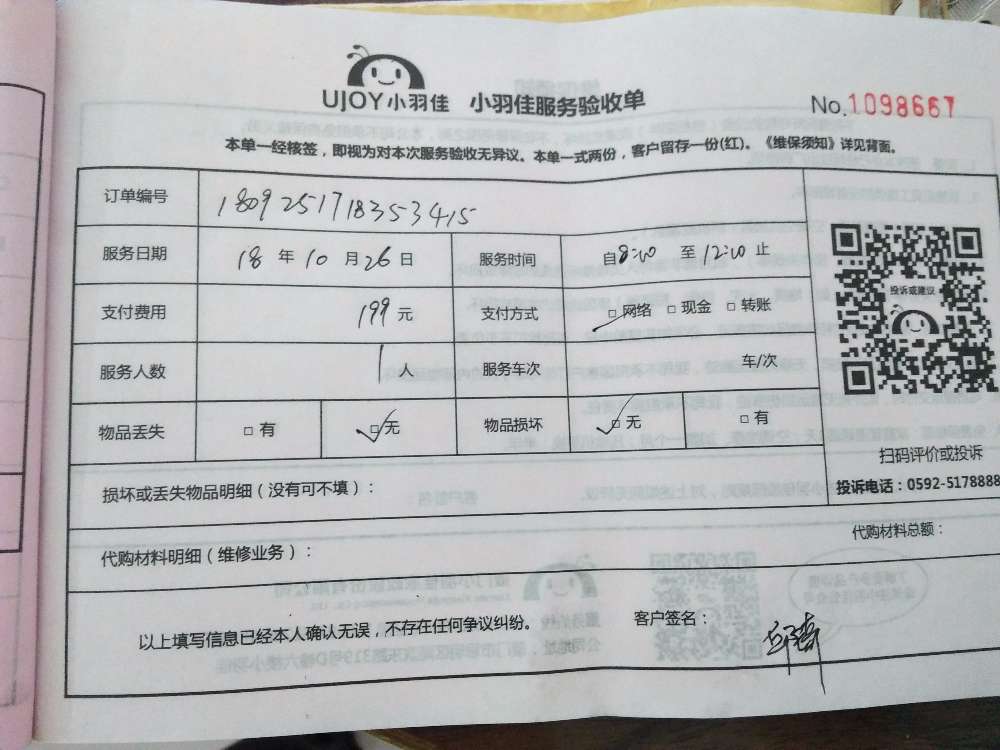 UJOY小羽佳 小羽佳服务验收单
No.1098667
本单一经核签，即视为对本次服务验收无异议。本单一式两份，客户留存一份(红)。《维保须知》详见背面。
订单编号 1809251718353415
服务日期 18 年 10 月 26 日 服务时间 自8:00 至 12:00 止
支付费用 199 元 支付方式 □ 网络 □ 现金 □ 转账
投诉或建议
服务人数 1 人 服务车次 车/次
物品丢失 □ 有 □ 无 物品损坏 □ 无 □ 有
扫码评价或投诉
投诉电话：0592-5178888
损坏或丢失物品明细（没有可不填）：
代购材料明细（维修业务）： 代购材料总额：
以上填写信息已经本人确认无误，不存在任何争议纠纷。 客户签名：